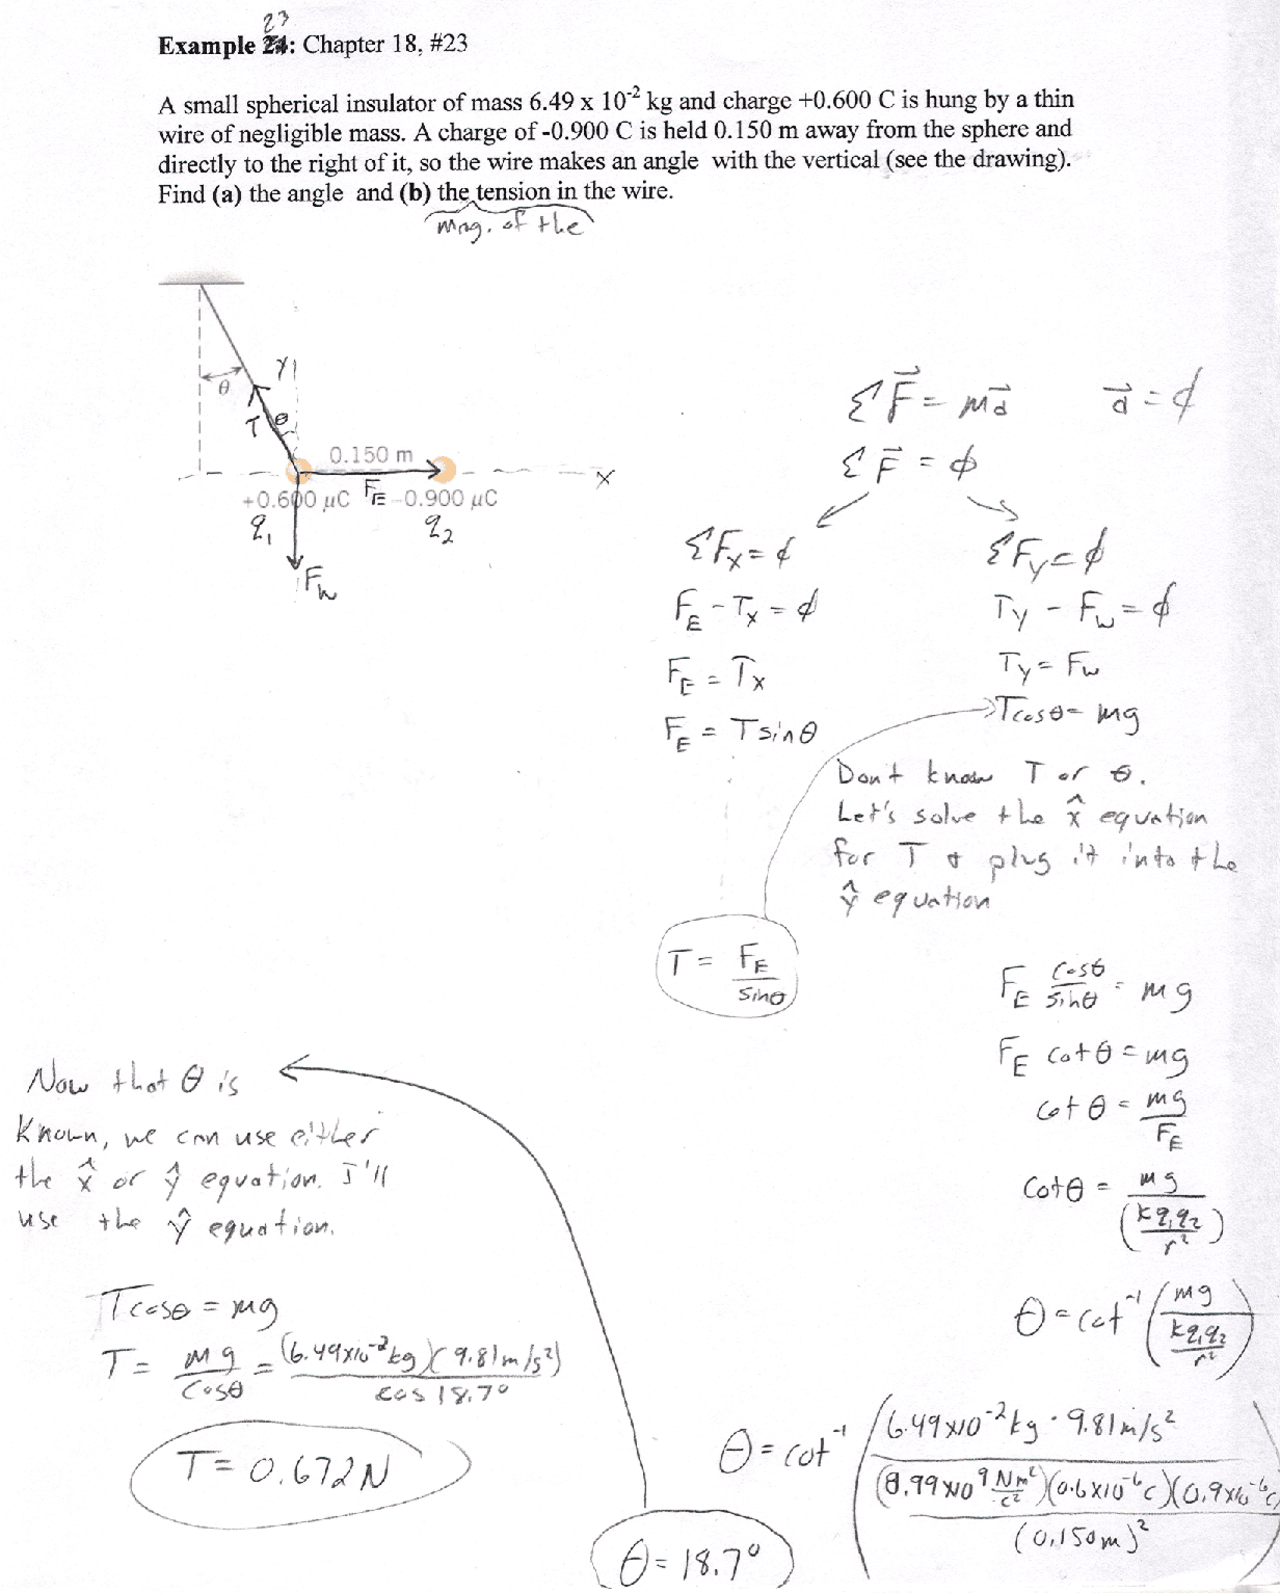 23
Example 24: Chapter 18, #23
A small spherical insulator of mass 6.49 x 10⁻² kg and charge +0.600 C is hung by a thin
wire of negligible mass. A charge of -0.900 C is held 0.150 m away from the sphere and
directly to the right of it, so the wire makes an angle with the vertical (see the drawing).
Find (a) the angle and (b) the tension in the wire.
mag. of the
θ
Y
T
θ
0.150 m
X
+0.600 μC
F_E
-0.900 μC
q₁
q₂
F_w
ΣF⃗ = ma⃗
a⃗ = ϕ
ΣF⃗ = ϕ
ΣFx = ϕ
F_E - Tx = ϕ
F_E = Tx
F_E = T sinθ
ΣFy = ϕ
Ty - F_w = ϕ
Ty = F_w
Tcosθ = mg
Don't know T or θ.
Let's solve the x̂ equation
for T + plug it into the
ŷ equation
T = F_E / sinθ
F_E cosθ / sinθ = mg
F_E cotθ = mg
cotθ = mg / F_E
cotθ = mg / (kq₁q₂ / r²)
θ = cot⁻¹ (mg / (kq₁q₂ / r²))
θ = cot⁻¹ (6.49x10⁻² kg · 9.81 m/s² / ((8.99x10⁹ Nm²/c²)(0.6x10⁻⁶ c)(0.9x10⁻⁶ c) / (0.150m)²))
θ = 18.7°
Now that θ is
Known, we can use either
the x̂ or ŷ equation. I'll
use the ŷ equation.
Tcosθ = mg
T = mg / cosθ = (6.49x10⁻² kg)(9.81 m/s²) / cos 18.7°
T = 0.672N